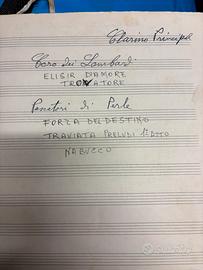 Clarino Principal
Coro dei Lombardi
ELISIR D'AMORE
TROVATORE
Pescatori di Perle
FORZA DEL DESTINO
TRAVIATA PRELUDI 1° ATTO
NABUCCO
subito.it